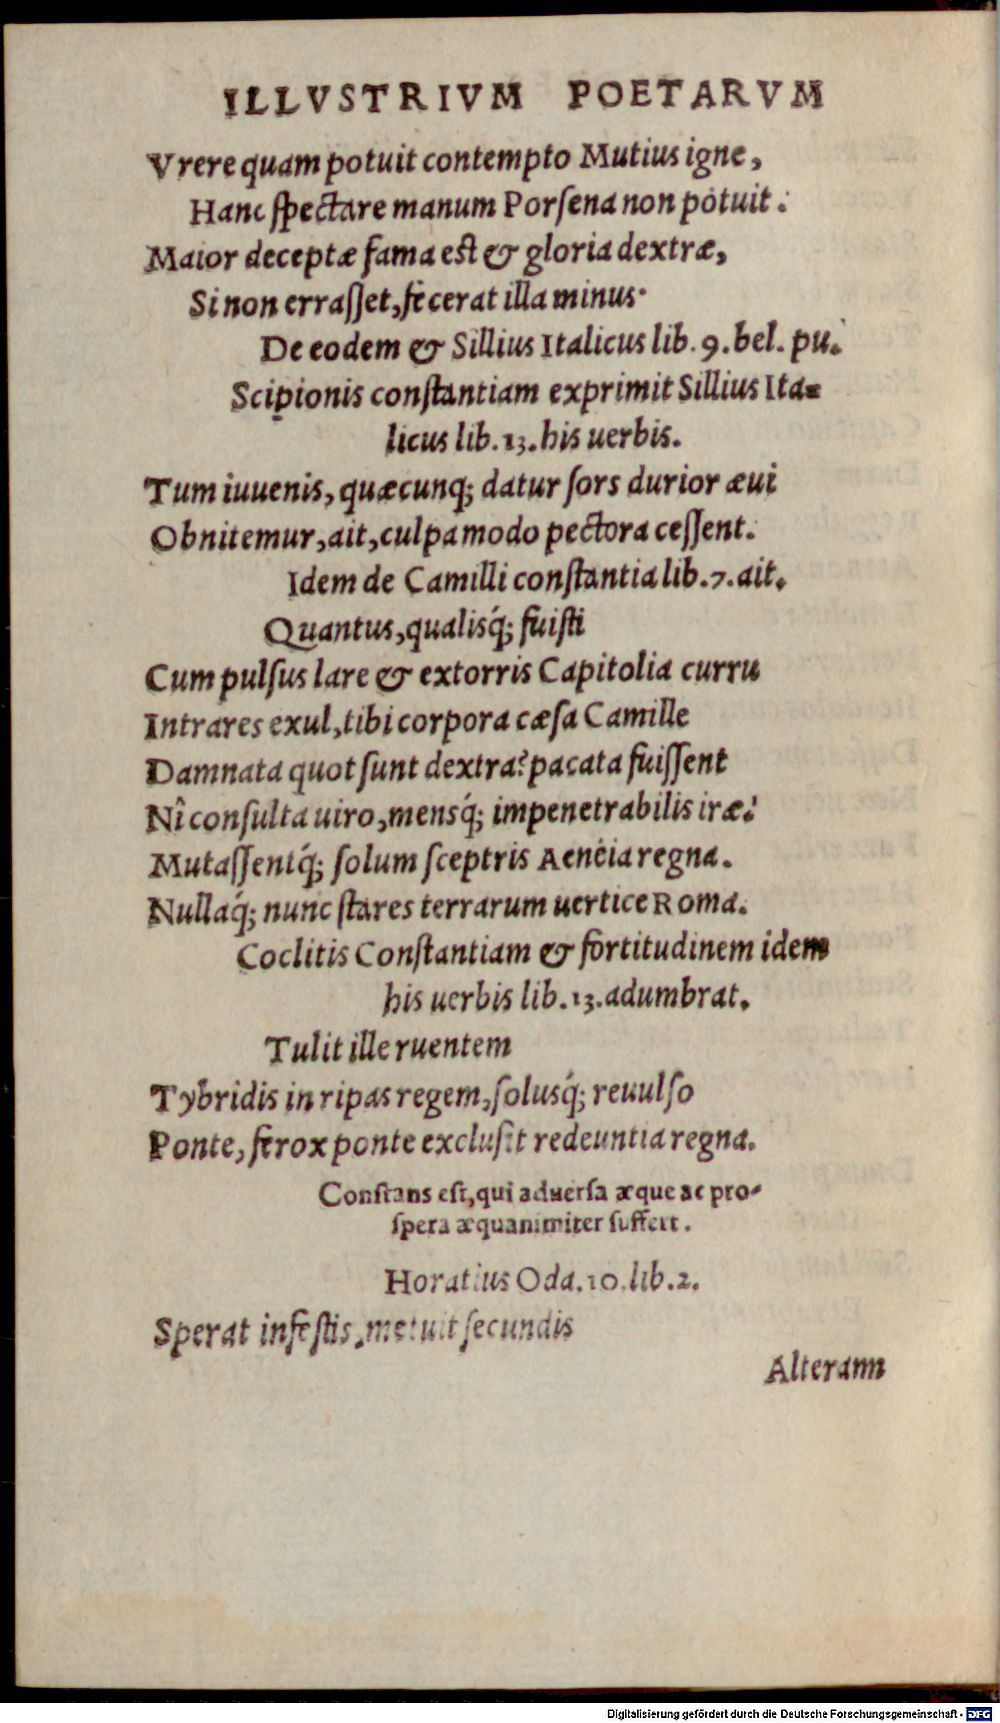 ILLVSTRIVM POETARVM
Vrere quam potuit contempto Mutius igne,
Hanc ſpectare manum Porſena non potuit.
Maior deceptæ fama est & gloria dextræ,
Si non erraſſet, fecerat illa minus.
De eodem & Sillius Italicus lib. 9. bel. pu.
Scipionis conſtantiam exprimit Sillius Ita=
licus lib. 13. his uerbis.
Tum iuuenis, quæcunq; datur ſors durior æui
Obnitemur, ait, culpa modo pectora ceſſent.
Idem de Camilli conſtantia lib. 7. ait.
Quantus, qualisq́; fuiſti
Cum pulſus lare & extorris Capitolia curru
Intrares exul, tibi corpora cæſa Camille
Damnata quot ſunt dextra? pacata fuiſſent
Nî conſulta uiro, mensq́; impenetrabilis iræ?
Mutaſſentq́; ſolum ſceptris Aenëia regna.
Nullaq́; nunc ſtares terrarum uertice Roma.
Coclitis Conſtantiam & fortitudinem idem
his uerbis lib. 13. adumbrat.
Tulit ille ruentem
Tybridis in ripas regem, ſolusq́; reuulſo
Ponte, ferox ponte excluſit redeuntia regna.
Conſtans eſt, qui aduerſa æque ac pro-
ſpera æquanimiter ſuffert.
Horatius Oda. 10. lib. 2.
Sperat infeſtis, metuit ſecundis
Alteram
Digitalisierung gefördert durch die Deutsche Forschungsgemeinschaft - DFG